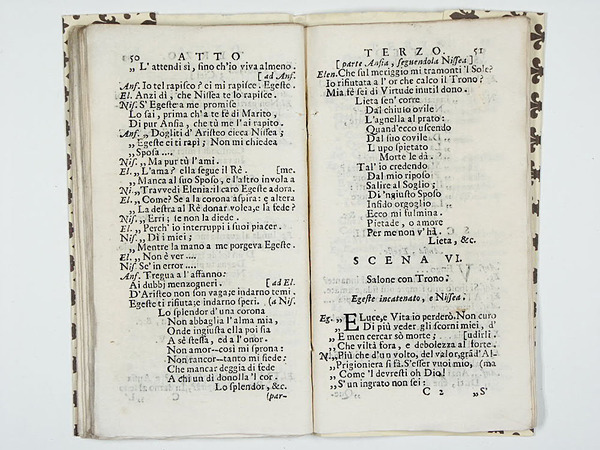 50 ATTO
„ L'attendi sì, sino ch'io viva almeno.
[ad Ans.
Ans. Io tel rapisco? ei mi rapisce. Egeste.
El. Anzi dì, che Nissea te lo rapisce.
Nis. S' Egeste a me promise
Lo sai, prima ch'a te fè di Marito,
Di pur Ansia, che tù me l'ai rapito.
Ans. „ Dogliti d'Aristeo cieca Nissea;
„ Egeste ei ti rapì; Non mi chiedea
„ Sposa....
Nis. „ Ma pur tù l'ami.
El. „ L'ama? ella segue il Rè. [me.
„ Manca al suo Sposo, e l'altro invola a
Ni. „ Travvedi Elenia: il caro Egeste adora.
El. „ Come? Se a la corona aspira: e altera
„ La destra al Rè donar volea, e la fede?
Nis. „ Erri; se non la diede.
El. „ Perch' io interruppi i suoi piacer.
Nis. „ Di i miei;
„ Mentre la mano a me porgeva Egeste.
El. „ Non è ver....
Nis Se' in error....
Ans. Tregua a l'affanno:
Ai dubbj menzogneri. [ad El.
D'Aristeo non son vaga; e indarno temi.
Egeste ti rifiuta; e indarno speri. (a Nis.
Lo splendor d'una corona
Non abbaglia l'alma mia,
Onde ingiusta ella poi sia
A sè stessa, ed a l'onor.
Non amor--così mi sprona:
Non rancor--tanto mi siede:
Che mancar deggia di fede
A chi un dì donolla 'l cor.
Lo splendor, &c.
(par-
TERZO. 51
[parte Ansia, seguendola Nissea]
Elen. Che sul meriggio mi tramonti 'l Sole?
Io rifiutata a l' or che calco il Trono?
Mia fè sei di Virtude inutil dono.
Lieta sen' corre
Dal chiuso ovile
L'agnella al prato:
Quand'ecco uscendo
Dal suo covile
L upo spietato
Morte le dà.
Tal' io credendo
Dal mio riposo
Salire al Soglio;
Di 'ngiusto Sposo
Infido orgoglio
Ecco mi fulmina.
Pietade, o amore
Per me non v'hà.
Lieta, &c.
SCENA VI.
Salone con Trono.
Egeste incatenato, e Nissea.
Eg. „ E Luce, e Vita io perderò. Non curo
„ Di più veder gli scorni miei, d'
„ E men cercar sò morte; [udirli.
„ Che viltà fora, e debolezza al forte.
N. „ Più che d'un volto, del valor, grād'Al-
„ Prigioniera si fà. S'esser vuoi mio, (ma
„ Come 'l devresti oh Dio!
„ S'un ingrato non sei:
C 2 „ S'